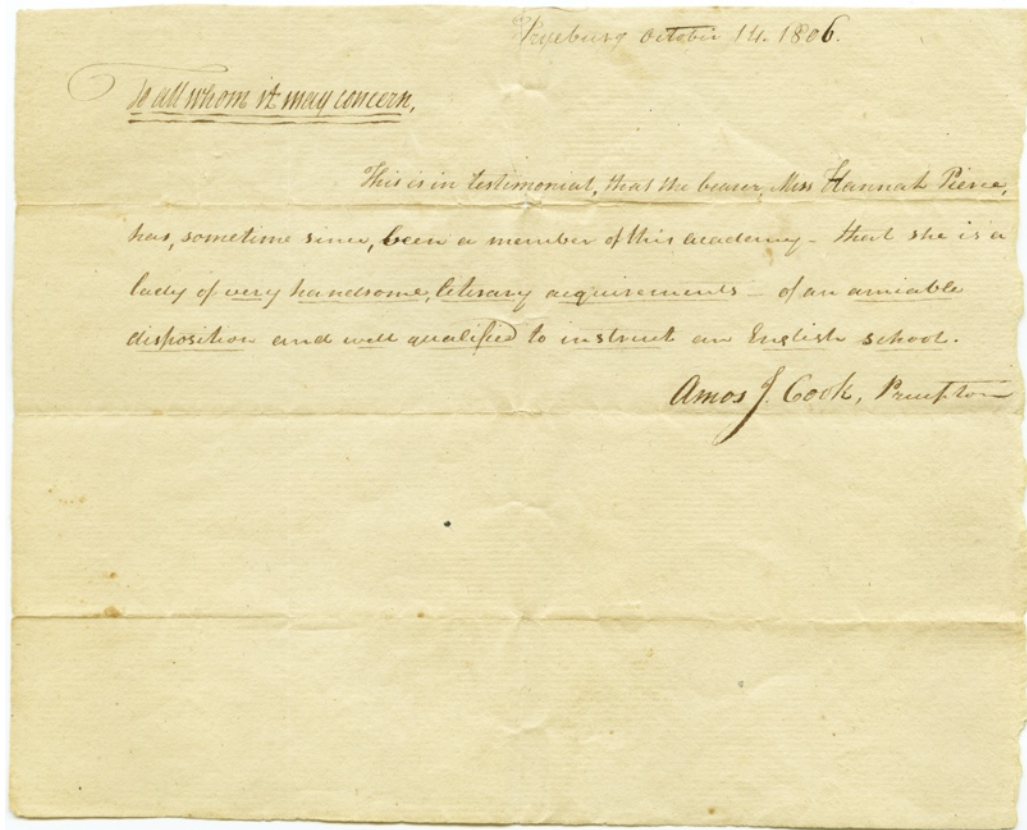 Fryeburg October 14. 1806.
To all whom it may concern,
This is in testimonial, that the bearer, Miss Hannah Pierce,
has, sometime since, been a member of this academy - that she is a
lady of very handsome, literary acquirements - of an amiable
disposition and well qualified to instruct an English school.
Amos J. Cook, Preceptor